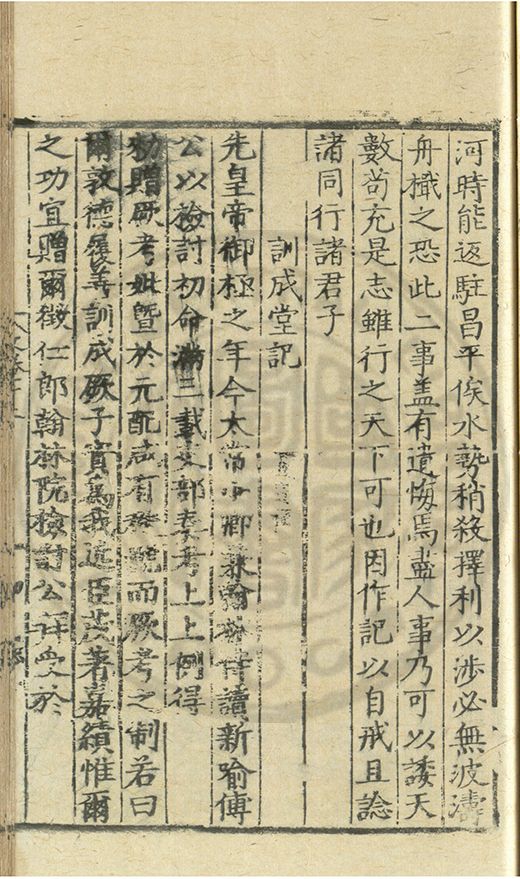 河時能返駐昌平俟水勢稍殺擇利以涉必無波濤
舟檝之恐此二事盖有遺悔焉盡人事乃可以諉天
數苟充是志雖行之天下可也因作記以自戒且諗
諸同行諸君子
訓成堂記
先皇帝御極之年今太常少卿兼翰林侍讀新喻傅
公以檢討初命滿三載吏部奏考上上例得
勑贈厥考妣暨於元配咸有而厥考之制若曰
爾敦德履善訓成厥子實爲我近臣茂著嘉績惟爾
之功宜贈爾徵仁郎翰林院檢討公拜受於